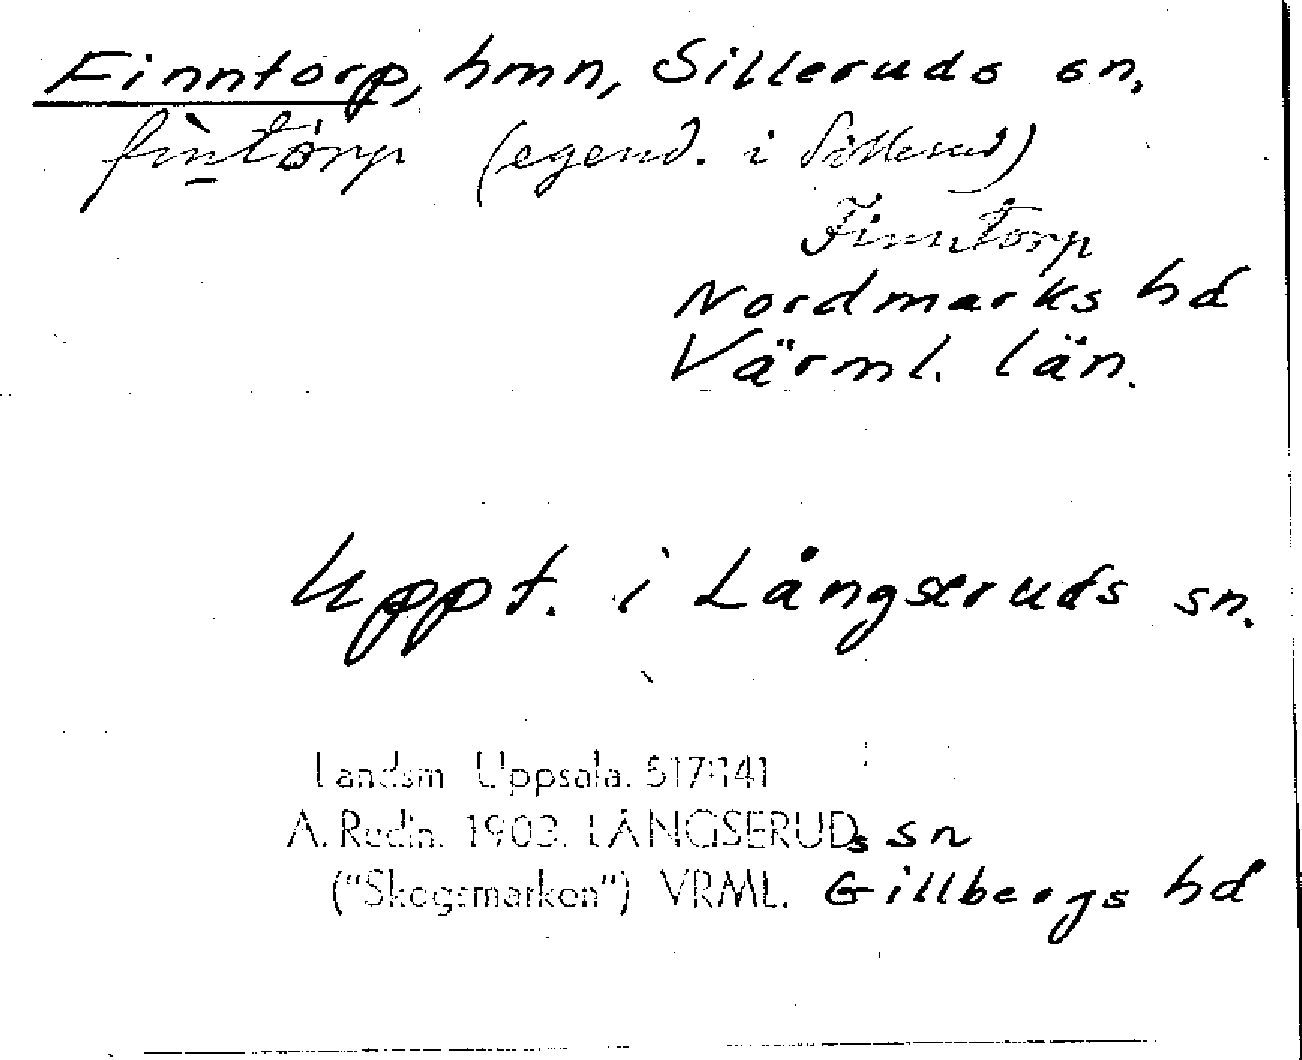 Finntorp, hmn, Silleruds sn.
fìntórp (egend. i Sillerud)
Finntorp
Nordmarks hd
Värml. län.
Uppt. i Långseruds sn.
Landsm Uppsala. 517:141
A. Redin. 1903. LÅNGSERUDs sn
("Skogsmarken") VRML. Gillbergs hd